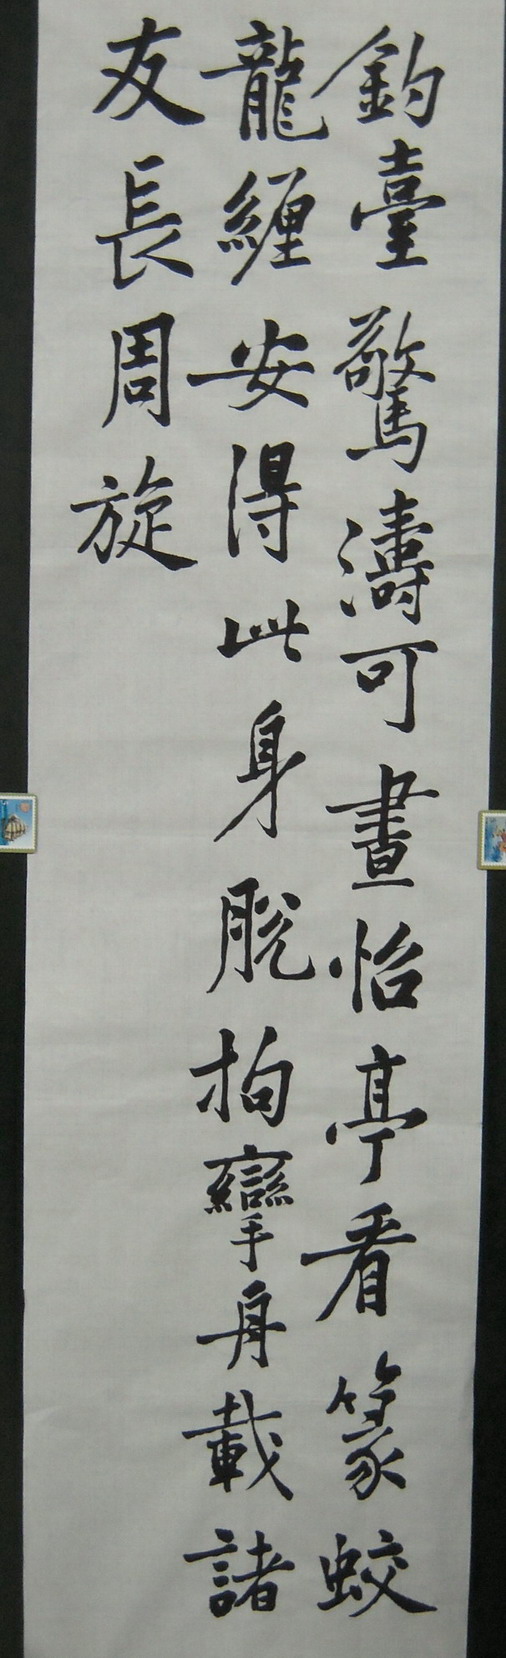 釣臺驚濤可晝怡亭看篆蛟
龍纏安得此身脫拘攣舟載諸
友長周旋